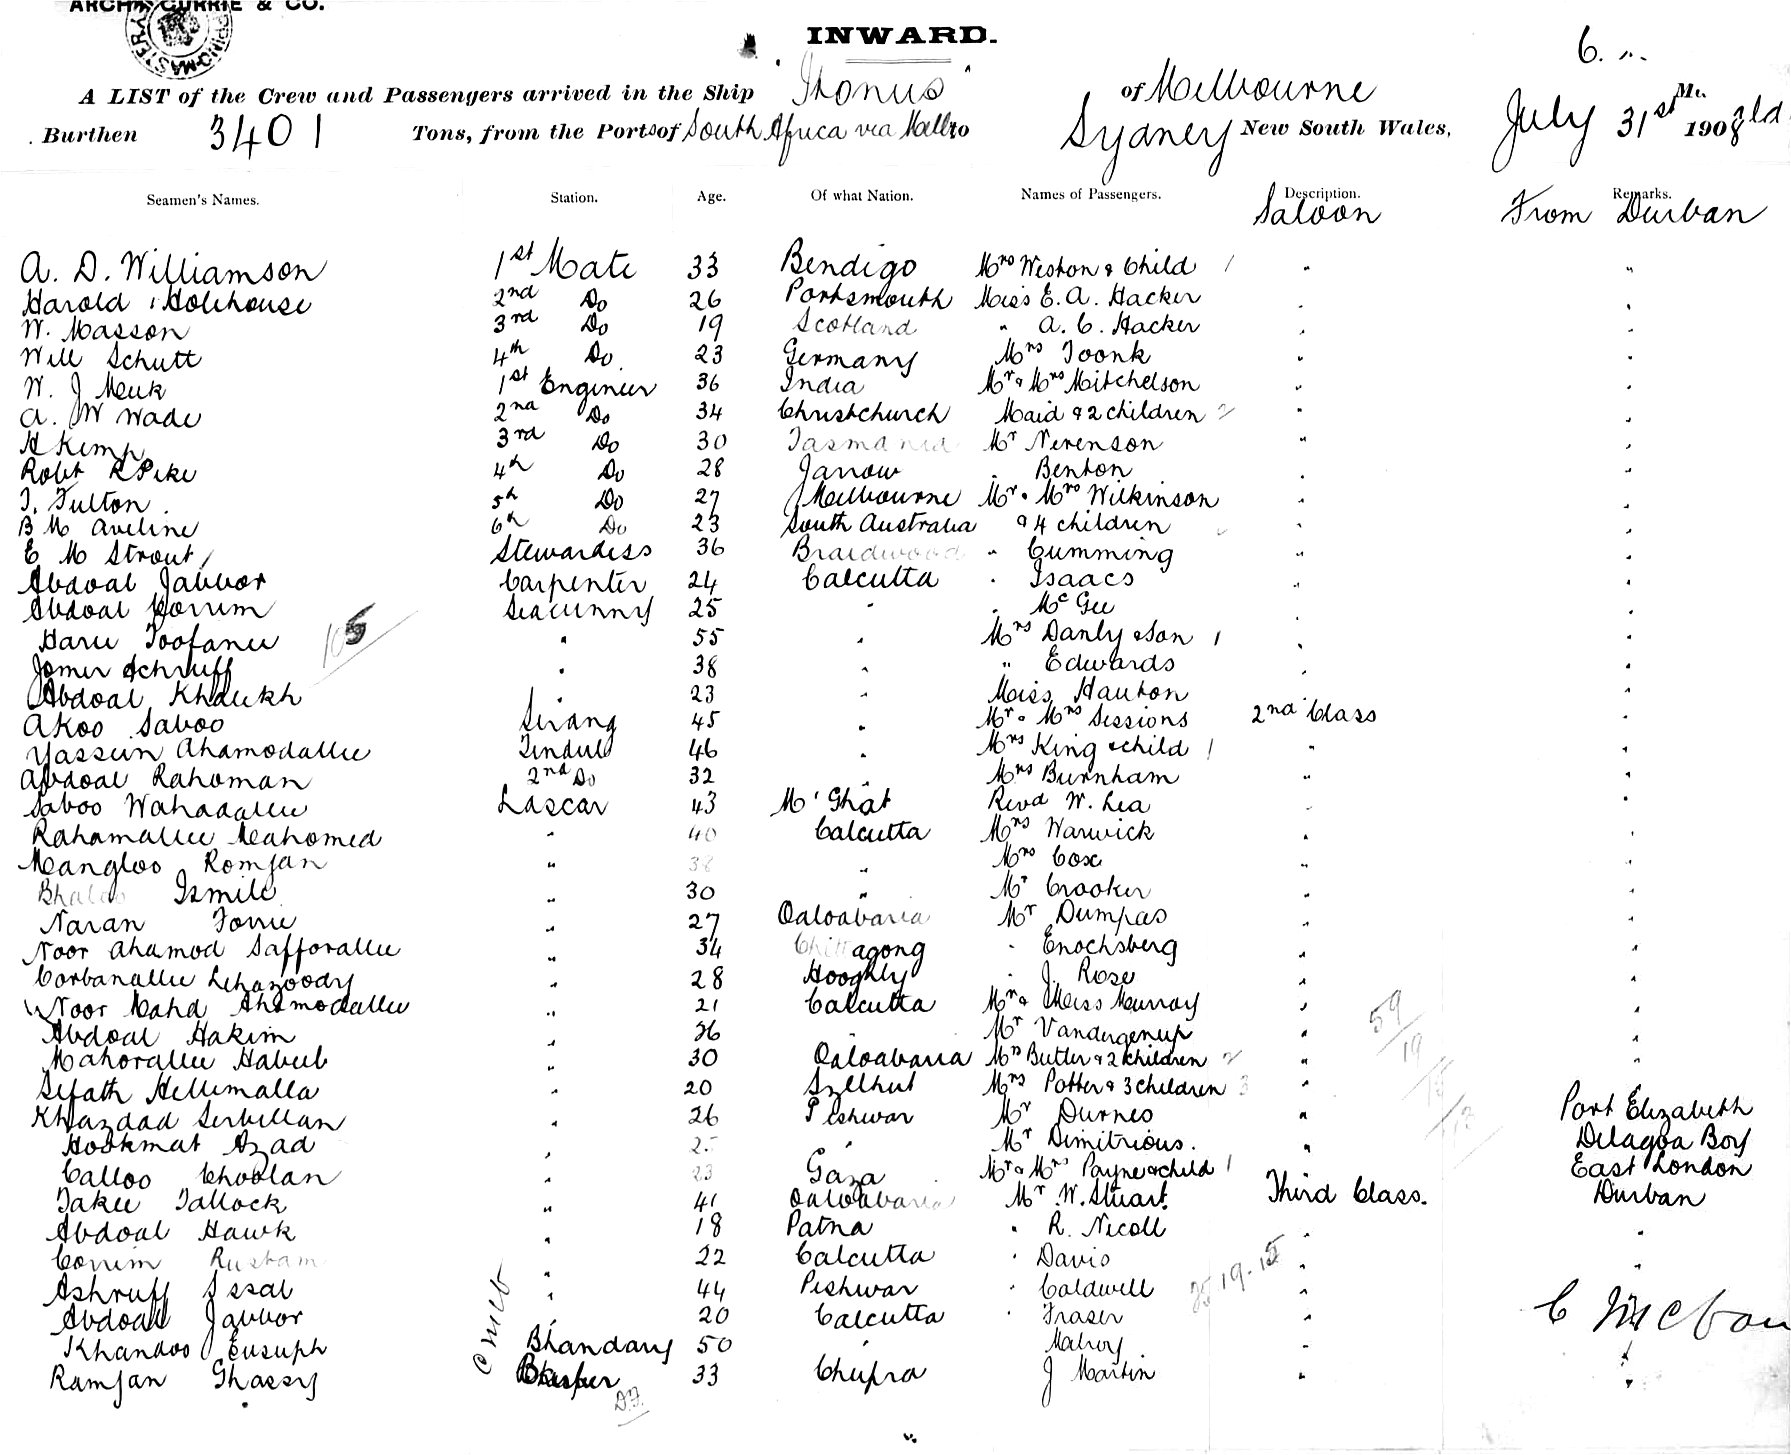 ARCHD. CURRIE & CO.
INWARD.
6.
A LIST of the Crew and Passengers arrived in the Ship "Itonus" of Melbourne
Burthen 3401 Tons, from the Ports of South Africa via Melb to Sydney New South Wales, July 31st 1908
Seamen's Names. Station. Age. Of what Nation. Names of Passengers. Description. Remarks.
Saloon From Durban
A. D. Williamson 1st Mate 33 Bendigo Mrs Weston & Child 1 "
Harold Holehouse 2nd Do 26 Portsmouth Miss E. A. Hacker
W. Masson 3rd Do 19 Scotland " A. C. Hacker
Will Schutt 4th Do 23 Germany Mrs Toonk
W. J Meuk 1st Engineer 36 India Mr & Mrs Mitchelson
A. W Wade 2nd Do 34 Christchurch Maid & 2 children 2
H Kemp 3rd Do 30 Tasmania Mr Nerenson
Robt R Pike 4th Do 28 Jarrow " Benton
T. Fulton 5th Do 27 Melbourne Mr & Mrs Wilkinson
B M Aveline 6th Do 23 South Australia & 4 children
E M Strout Stewardess 36 Braidwood " Cumming
Abdoal Jabbor Carpenter 24 Calcutta " Isaacs
Abdoal Korrim Seacunny 25 " " McGee
Haru Toofanee " 55 " Mrs Danly & Son 1
Jomer Schruff " 38 " " Edwards
Abdoal Khalikh " 23 " Miss Hauton
Akoo Saboo Serang 45 " Mr & Mrs Sessions 2nd Class
Yassein Ahamodallee Tindul 46 " Mrs King & child 1
Abdoal Rahoman 2nd Do 32 " Mrs Burnham
Saboo Wahadallee Lascar 43 M'Ghat Revd W. Lea
Rahamallee Mahomed " 40 Calcutta Mrs Warwick
Mangloo Romjan " 38 " Mrs Cox
Ismile " 30 " Mr Crooker
Naran " 27 Oaloabaria Mr Dumpas
Noor Ahamod Safforallee " 34 Chittagong " Enochsberg
Corbanallee " 28 Hooghly " J. Rose
Noor Mahd Ahamodallee " 21 Calcutta Mr & Miss Murray
Abdoal Hakim " 26 " Mr
Mahorallee Habul " 30 Oaloabaria Mrs Butler & 2 children 2
Sefath Hellimalla " 20 Szelhut Mrs Potter & 3 children 3
Khazdad Serbillan " 26 Peshwar Mr Durnes " Port Elizabeth
Hookmat Azad " " Mr Dimitrious. " Delagoa Bay
Calloo Choolan " 23 Gaza Mr & Mrs Payne & child 1 East London
Takee Tallock " 41 Oaloabaria Mr W. Stuart. Third Class. Durban
Abdoal Hawk " 18 Patna " R. Nicoll
Corrim Rustam " 22 Calcutta " Davis
Ashruff Issal " 44 Peshwar " Caldwell
Abdoal Jabbor " 20 Calcutta " Fraser
Khandoo Eusuph Bhandary 50 " Malroy
Ramjan Ghassy 33 Chupra J Martin